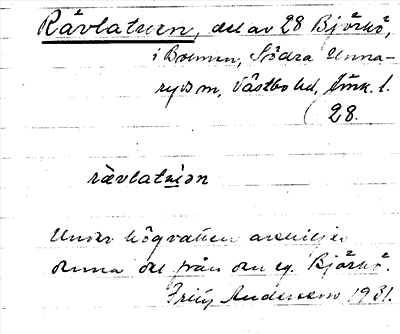 Rävlatuen, del av 28 Björkö,
i Bolmen, Södra Unna-
ryds sn, Västbo hd, Jönk. l.
(28.
rävlatuən
Under högvatten avskiljes
denna del från den eg. Björkö.
Fritz Andersson 1931.